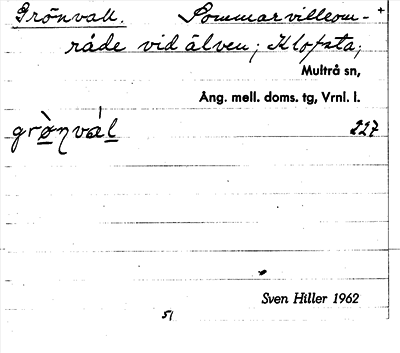 Grönvall. Sommarvilleom- +
råde vid älven; Klofsta;
Multrå sn,
Ång. mell. doms. tg, Vrnl. l.
grò̱ŋváḻ 227
Sven Hiller 1962
51